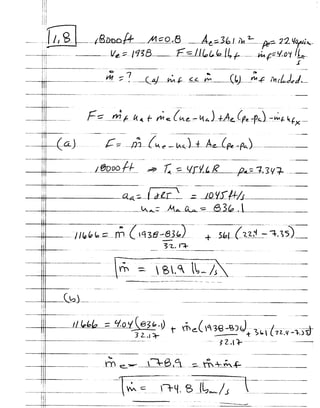 1.8 18000ft M=0.8 Ae=361 in² pe=22.4psia
Ve=1938 F=11666 lbf ṁf=4.04 lbm/s
ṁ=? (a) ṁf << ṁ (b) ṁf included.
F= ṁf ua + ṁe(ue-ua) + Ae(pe-pa) -ṁf ufx
(a) F= ṁ(ue-ua) + Ae(pe-pa)
18000ft ⇒ Ta = 454.6R pa=7.347
aa= √γRT = 1045 ft/s
ua= Ma aa = 836.1
11666= ṁ (1938-836)/32.17 + 361 (22.4-7.35)
ṁ = 181.9 lbm/s
(b)
11666 = 4.04 (836.1)/32.17 + ṁe(1938-836)/32.17 + 361 (22.4-7.35)
ṁe = 178.9 = ṁ+ṁf
ṁ = 174.8 lbm/s